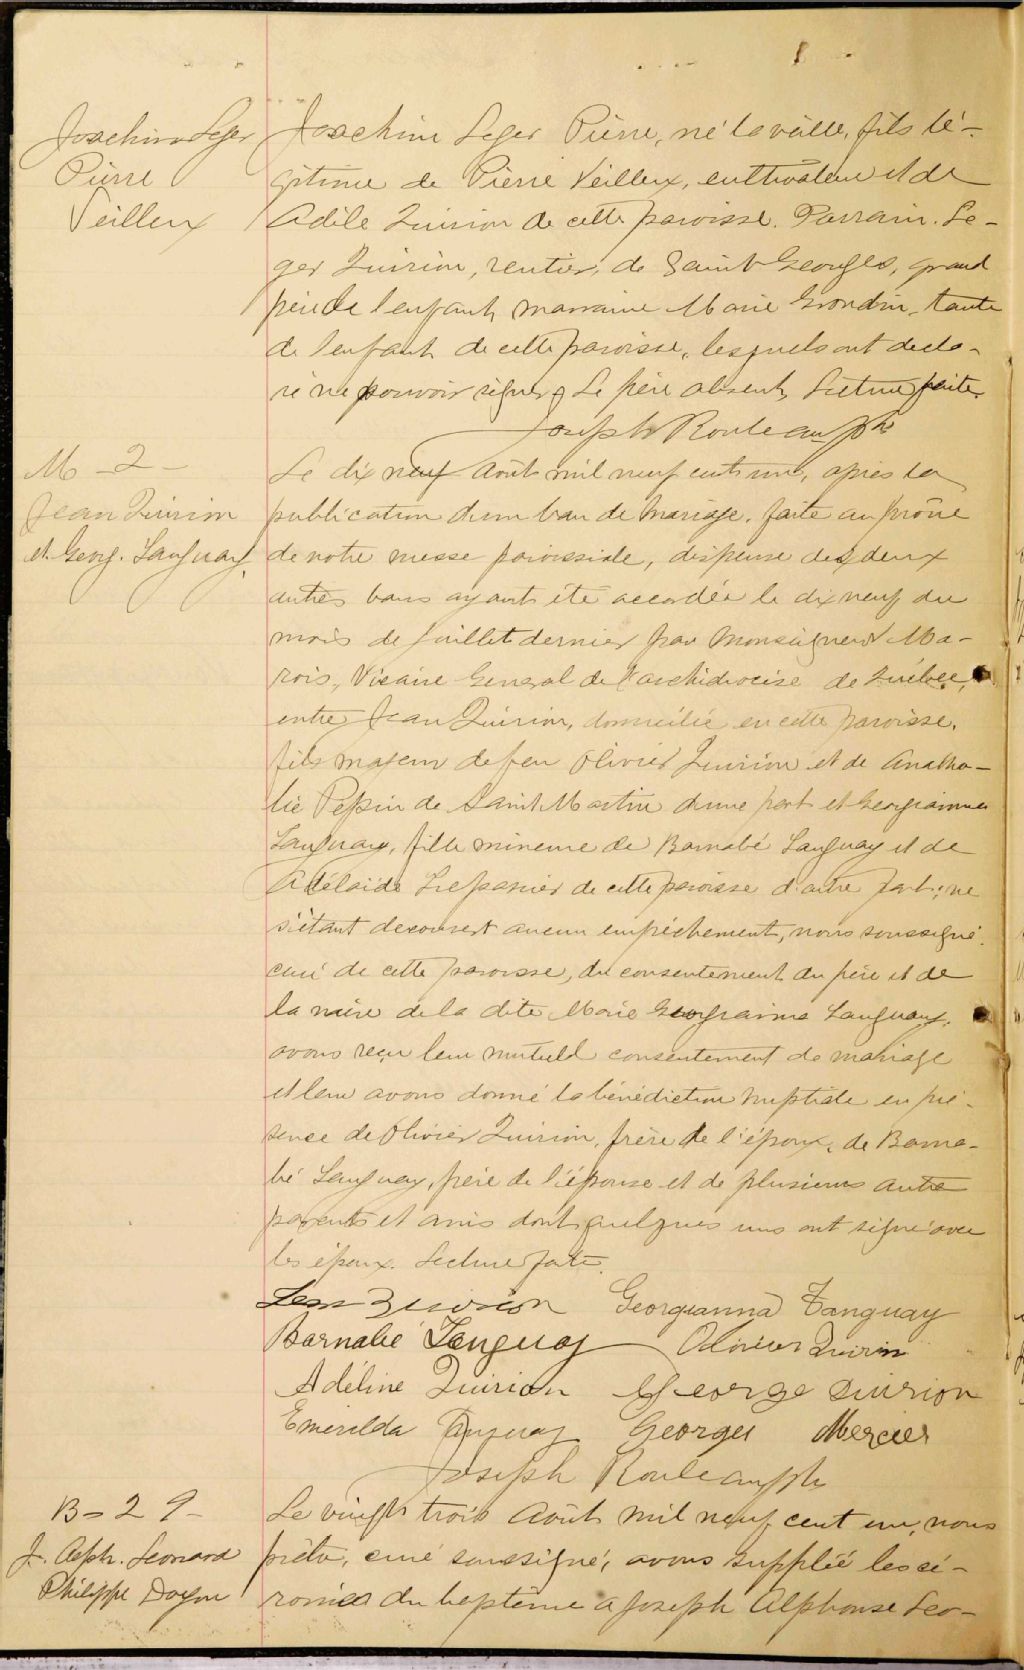 Joachim Leger
Pierre
Veilleux
Joachim Leger Pierre, né la veille, fils lé-
gitime de Pierre Veilleux, cultivateur et de
Adèle Quirion de cette paroisse. Parrain. Le-
ger Quirion, rentier, de Saint Georges, grand
père de l'enfant, marraine Marie Grondin, tante
de l'enfant de cette paroisse, lesquels ont décla-
ré ne pouvoir signer. Le père absent. Lecture faite.
Joseph Rouleau ptre
M - 2 -
Jean Quirion
et Georg. Tanguay
Le dix neuf Août mil neuf cent un, après la
publication d'un ban de mariage, faite au prône
de notre messe paroissiale, dispense des deux
autres bans ayant été accordée le dix neuf du
mois de Juillet dernier par Monseigneur Ma-
rois, Vicaire General de l'archidiocèse de Québec,
entre Jean Quirion, domicilié en cette paroisse,
fils majeur de feu Olivier Quirion et de Anatho-
lie Pepin de Saint Martin d'une part et Georgianna
Tanguay, fille mineure de Barnabé Tanguay et de
Adélaïde Trepanier de cette paroisse d'autre part; ne
s'étant découvert aucun empêchement, nous soussigné
curé de cette paroisse, du consentement du père et de
la mère de la dite Marie Georgianna Tanguay,
avons reçu leur mutuel consentement de mariage
et leur avons donné la bénédiction nuptiale en pré-
sence de Olivier Quirion, frère de l'époux, de Barna-
bé Tanguay, père de l'épouse et de plusieurs autre
parents et amis dont quelques uns ont signé avec
les époux. Lecture faite.
Jean Quirion Georgianna Tanguay
Barnabé Tanguay Olivier Quirion
Adéline Quirion George Quirion
Emerilda Tanguay Georges Mercier
Joseph Rouleau ptre
B - 29 -
J. Alph. Leonard
Philippe Doyon
Le vingt trois Août mil neuf cent un, nous
prêtre, curé soussigné, avons suppléé les cé-
romies du baptême a Joseph Alphonse Leo-